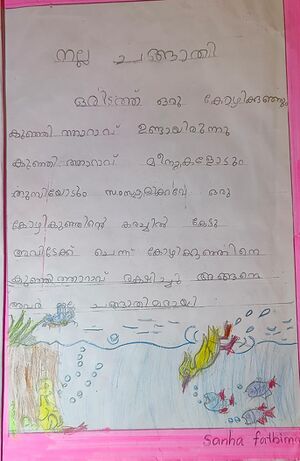 നല്ല ചങ്ങാതി
ഒരിടത്ത് ഒരു കോഴിക്കുഞ്ഞും
കുഞ്ഞി താറാവ് ഉണ്ടായിരുന്നു
കുഞ്ഞി താറാവ് മീനുകളോടും
തുമ്പിയോടും സംസാരിക്കവേ ഒരു
കോഴികുഞ്ഞിന്റെ കരച്ചിൽ കേട്ടു
അവിടേക്ക് ചെന്ന് കോഴിക്കുഞ്ഞിനെ
കുഞ്ഞിത്താറാവ് രക്ഷിച്ചു അങ്ങനെ
അവർ നല്ല ചങ്ങാതിമാരായി
Sanha fathima